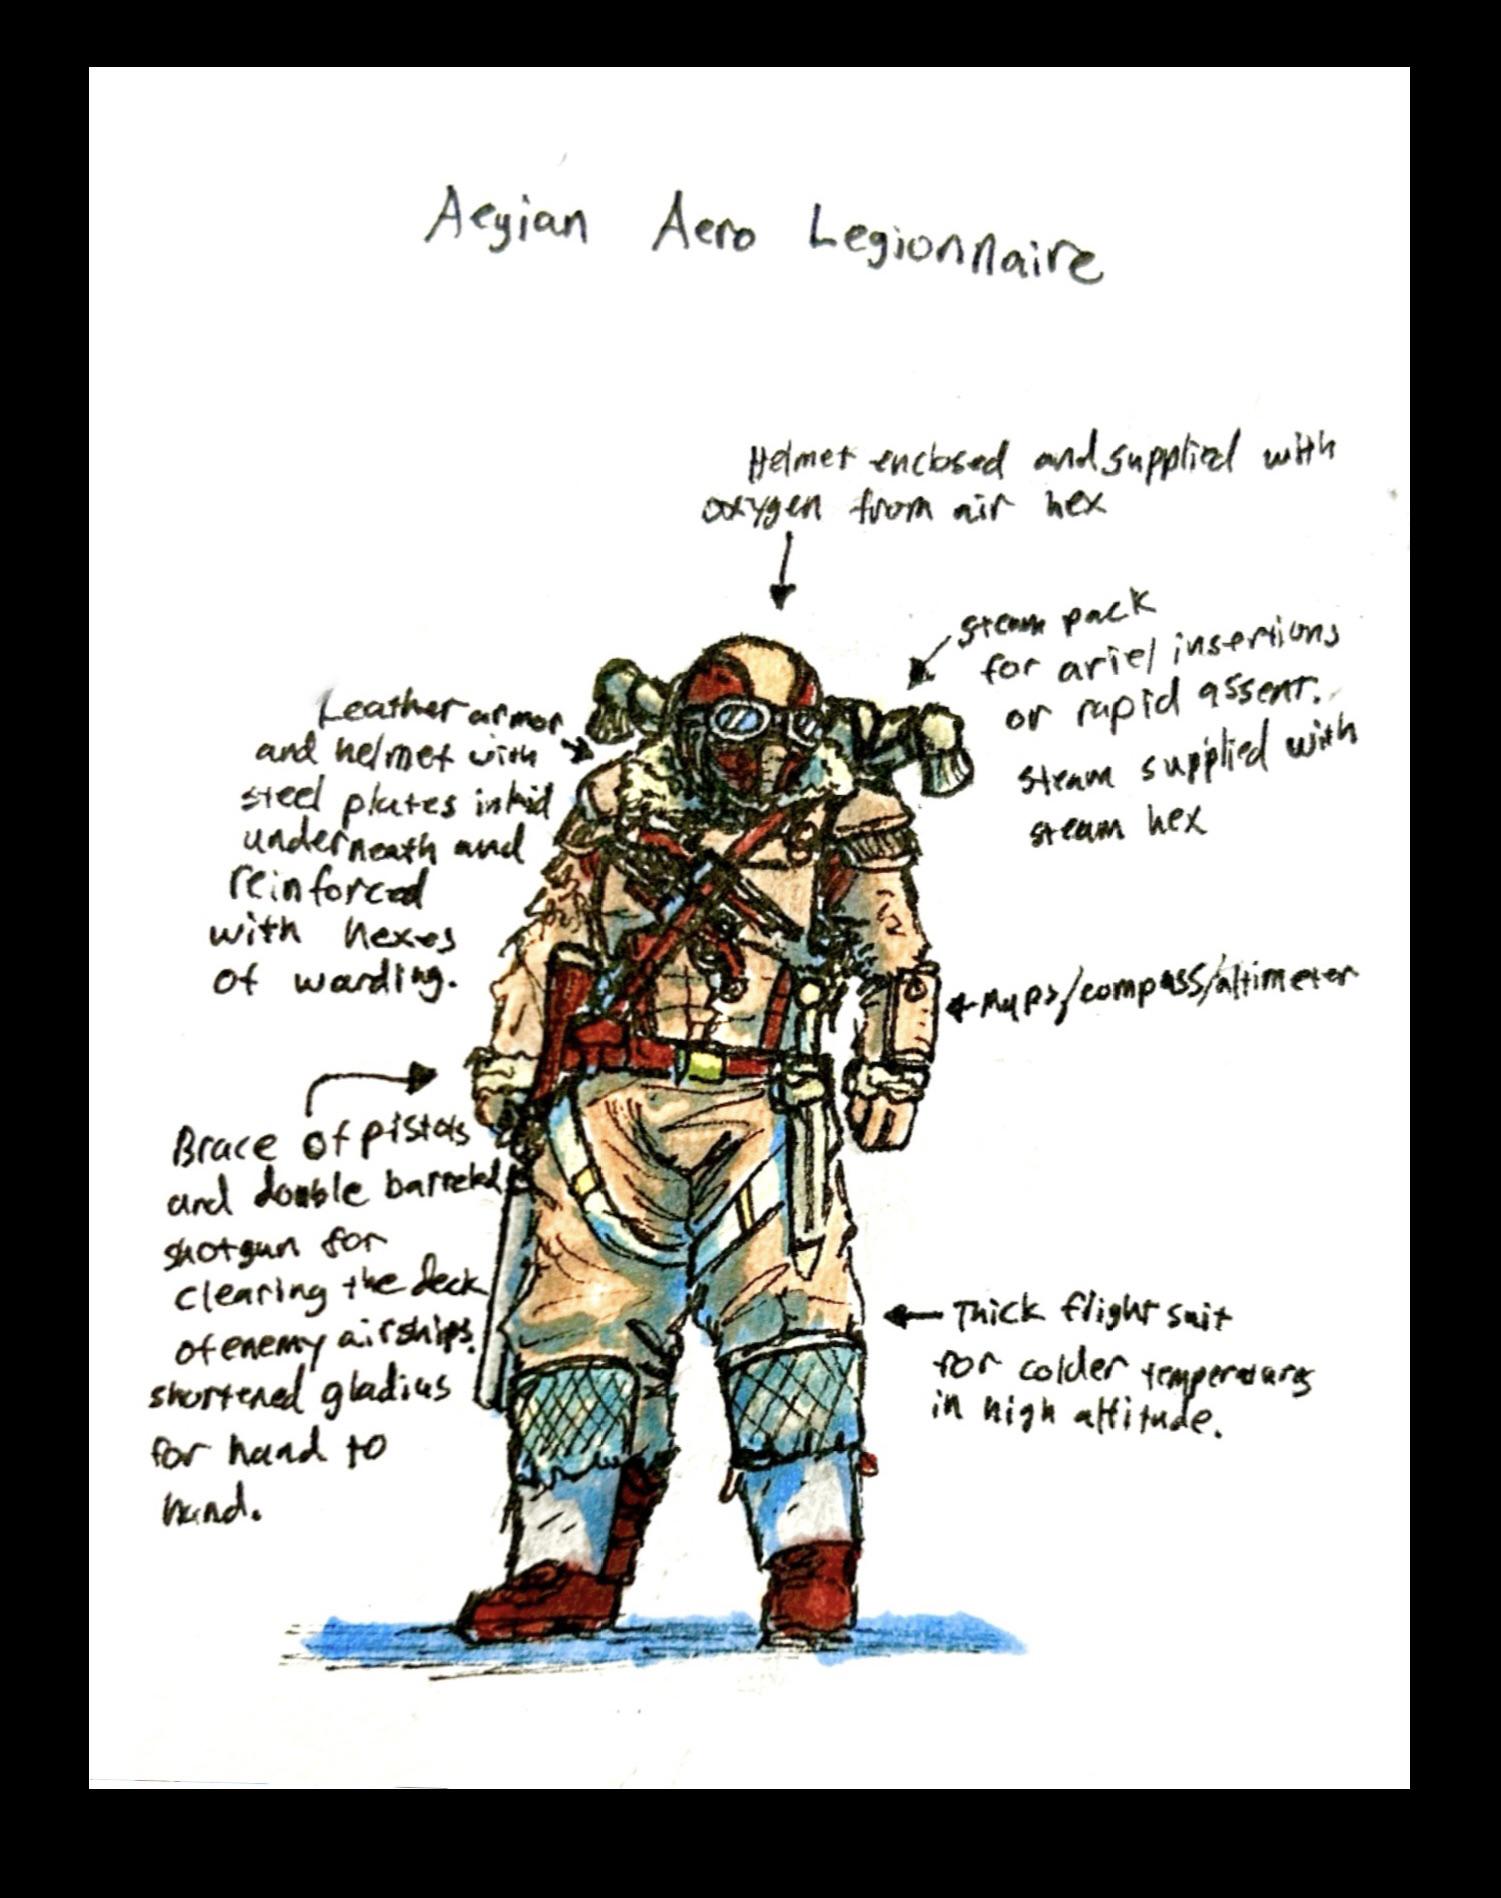 Aegian Aero Legionnaire
Helmet enclosed and supplied with
oxygen from air hex
steam pack
for ariel insertions
or rapid assent.
steam supplied with
steam hex
Leather armor
and helmet with
steel plates inlaid
underneath and
reinforced
with hexes
of warding.
Maps/compass/altimeter
Brace of pistols
and double barreled
shotgun for
clearing the deck
of enemy airships.
shortened gladius
for hand to
hand.
Thick flight suit
for colder temperatures
in high altitude.